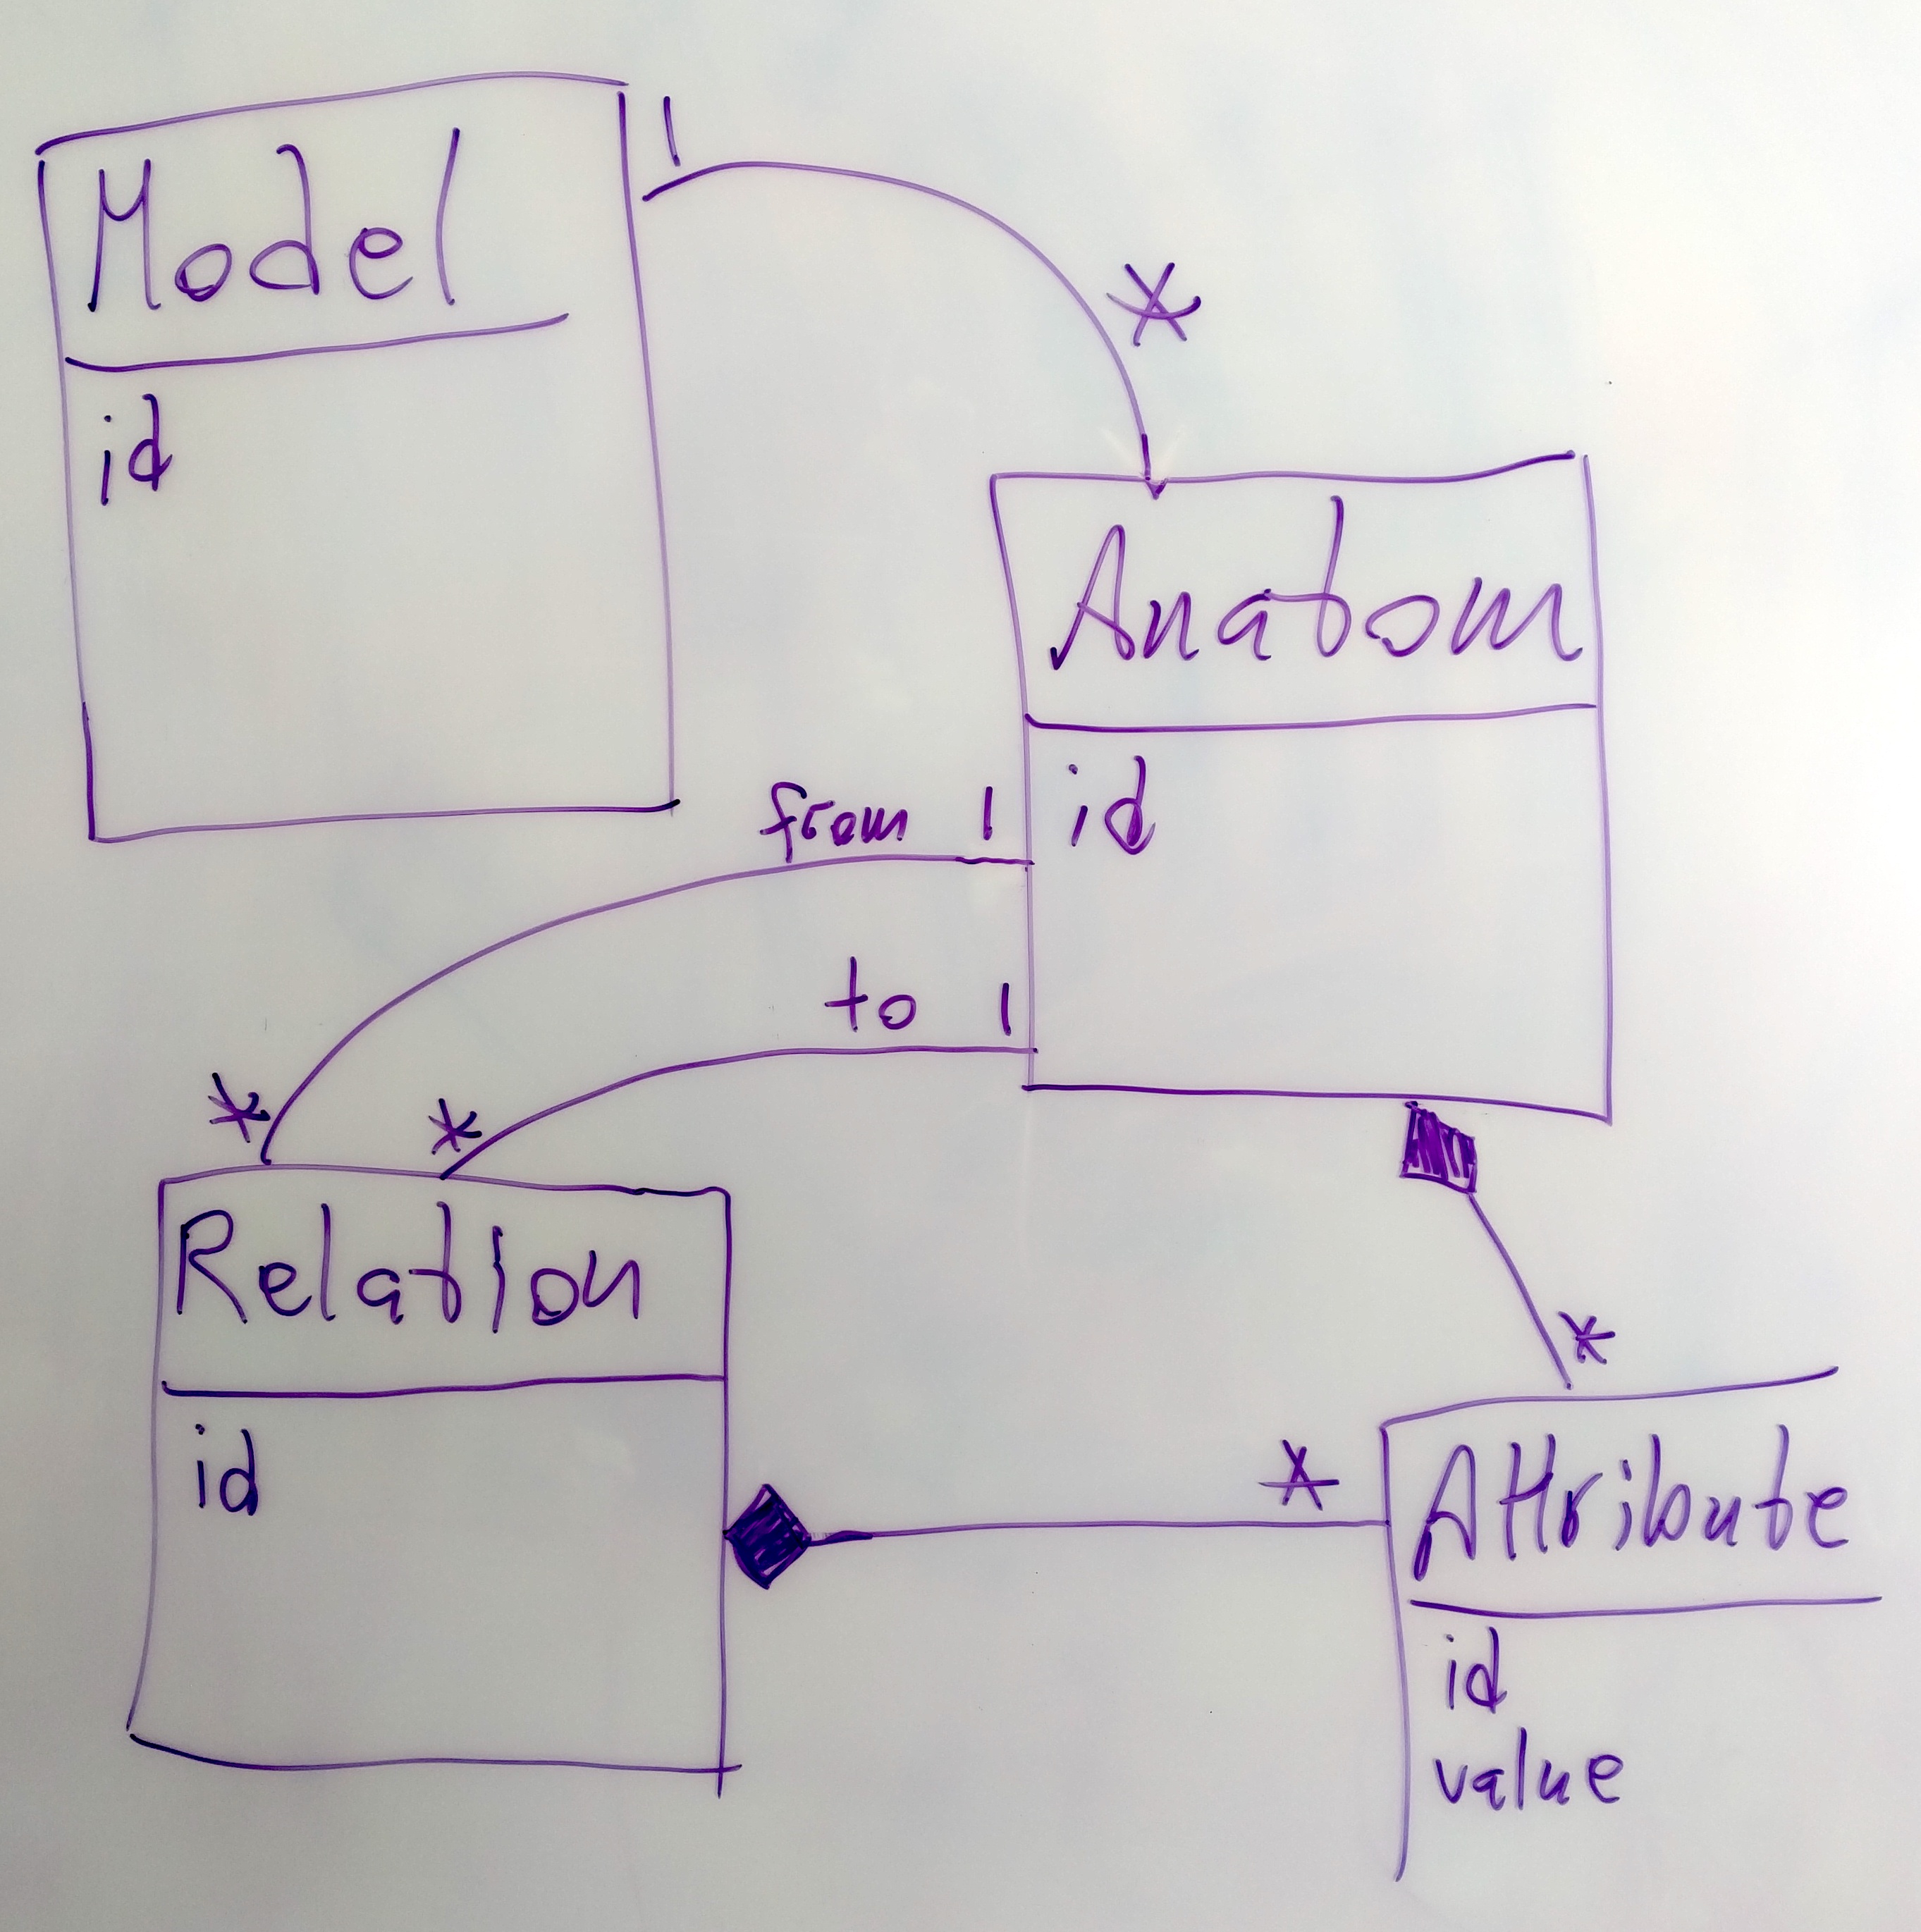 Model
1
*
id
Anatom
id
from 1
to 1
*
*
Relation
id
*
*
Attribute
id
value